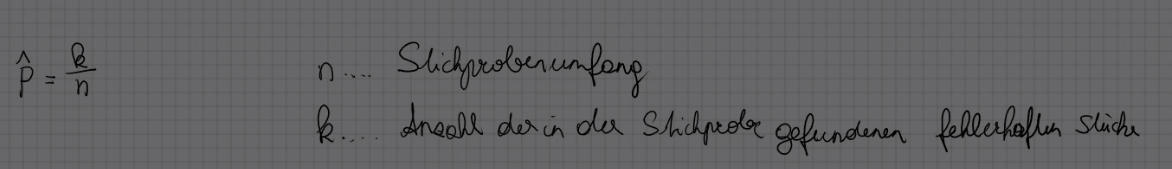 p̂ = k/n n.... Stichprobenumfang
k.... Anzahl der in der Stichprobe gefundenen fehlerhaften Stücke